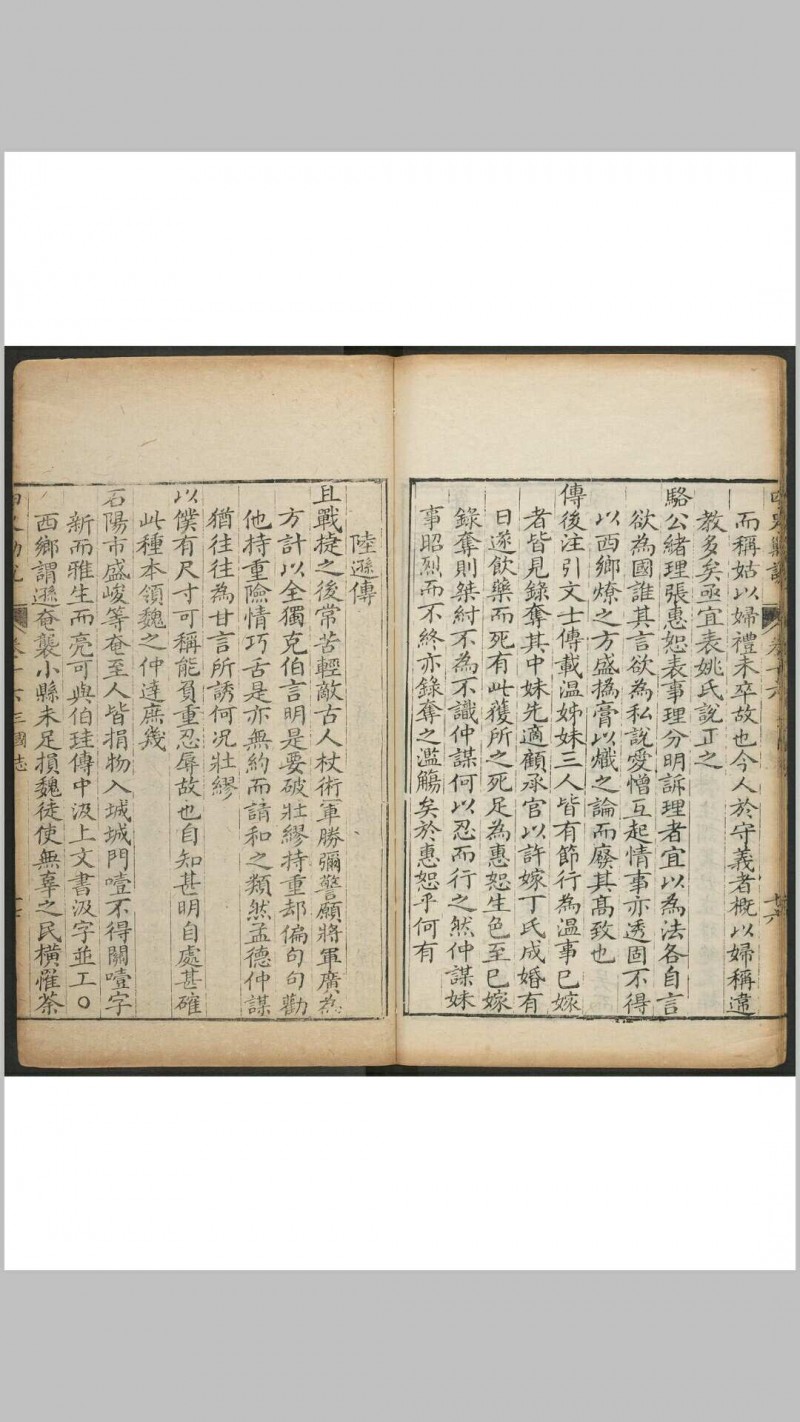 而稱姑以婦禮未卒故也今人於守義者概以婦稱違
教多矣亟宜表姚氏說正之
駱公緒理張惠恕表事理分明訴理者宜以為法各自言
欲為國誰其言欲為私說愛憎互起情事亦透固不得
以西鄉燎之方盛撝膏以熾之論而廢其髙致也
傳後注引文士傳載溫姊妹三人皆有節行為溫事已嫁
者皆見錄奪其中妹先適顧承官以許嫁丁氏成婚有
日遂飲藥而死有此獲所之死足為惠恕生色至已嫁
錄奪則桀紂不為不識仲謀何以忍而行之然仲謀妹
事昭烈而不終亦錄奪之濫觴矣於惠恕乎何有
陸遜傳
且戰捷之後常苦輕敵古人杖術軍勝彌警願將軍廣為
方計以全獨克伯言明是要破壯繆持重却偏句句勸
他持重險情巧舌是亦無約而請和之類然孟德仲謀
猶往往為甘言所誘何况壯繆
以僕有尺寸可稱能負重忍辱故也自知甚明自處甚確
此種本領魏之仲達庶幾
石陽市盛峻等奄至人皆捐物入城城門噎不得關噎字
新而雅生而亮可與伯珪傳中汲上文書汲字並工○
西鄉謂遜奄襲小縣未足損魏徒使無辜之民橫罹荼
卷十六三國志